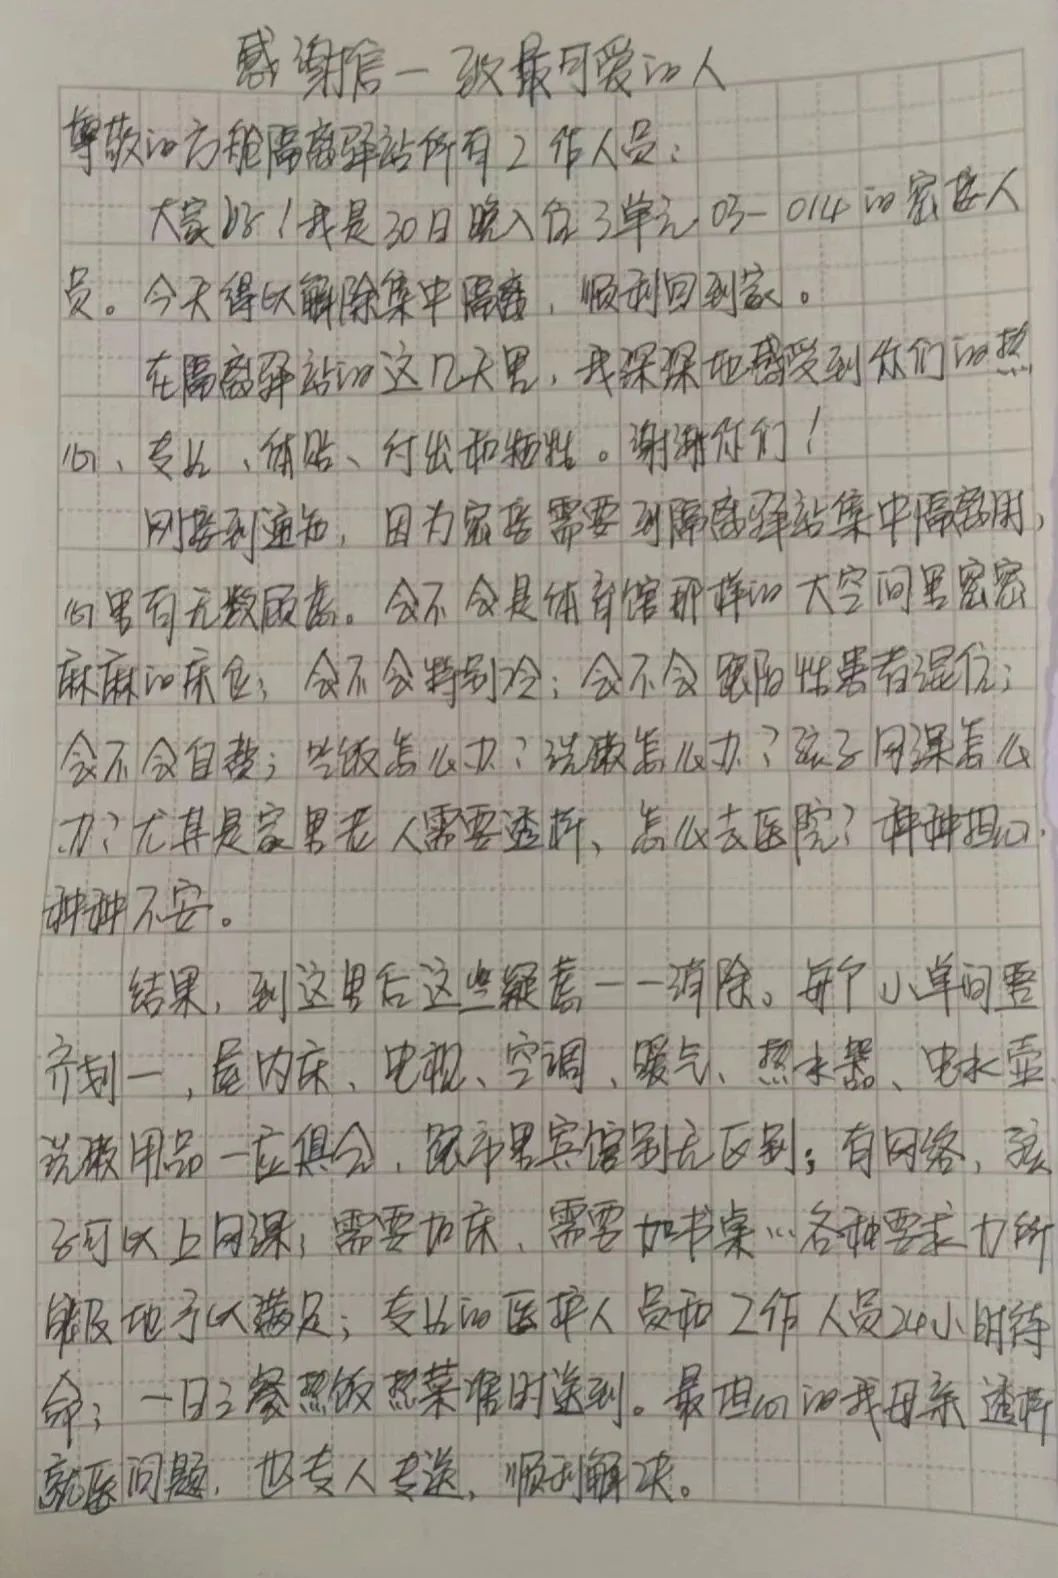 感谢信一致最可爱的人
尊敬的方舱隔离驿站所有工作人员:
大家好!我是30日晚入住3单元03-014的密接人
员。今天得以解除集中隔离,顺利回到家。
在隔离驿站的这几天里,我深深地感受到你们的热
心、专业、体贴、付出和牺牲。谢谢你们!
刚接到通知,因为密接需要到隔离驿站集中隔离时,
心里有无数顾虑。会不会是体育馆那样的大空间里密密
麻麻的床位;会不会特别冷;会不会跟阳性患者混住;
会不会自费;吃饭怎么办?洗漱怎么办?孩子网课怎么
办?尤其是家里老人需要透析、怎么去医院?种种担心、
种种不安。
结果,到这里后这些疑虑一一消除。每个小单间整
齐划一,屋内床、电视、空调、暖气、热水器、电水壶、
洗漱用品一应俱全,跟市里宾馆别无区别;有网络,孩
子可以上网课;需要加床、需要加书桌…各种要求力所
能及地予以满足;专业的医护人员和工作人员24小时待
命;一日3餐热饭热菜准时送到。最担心的我母亲透析
就医问题,也专人专送,顺利解决。